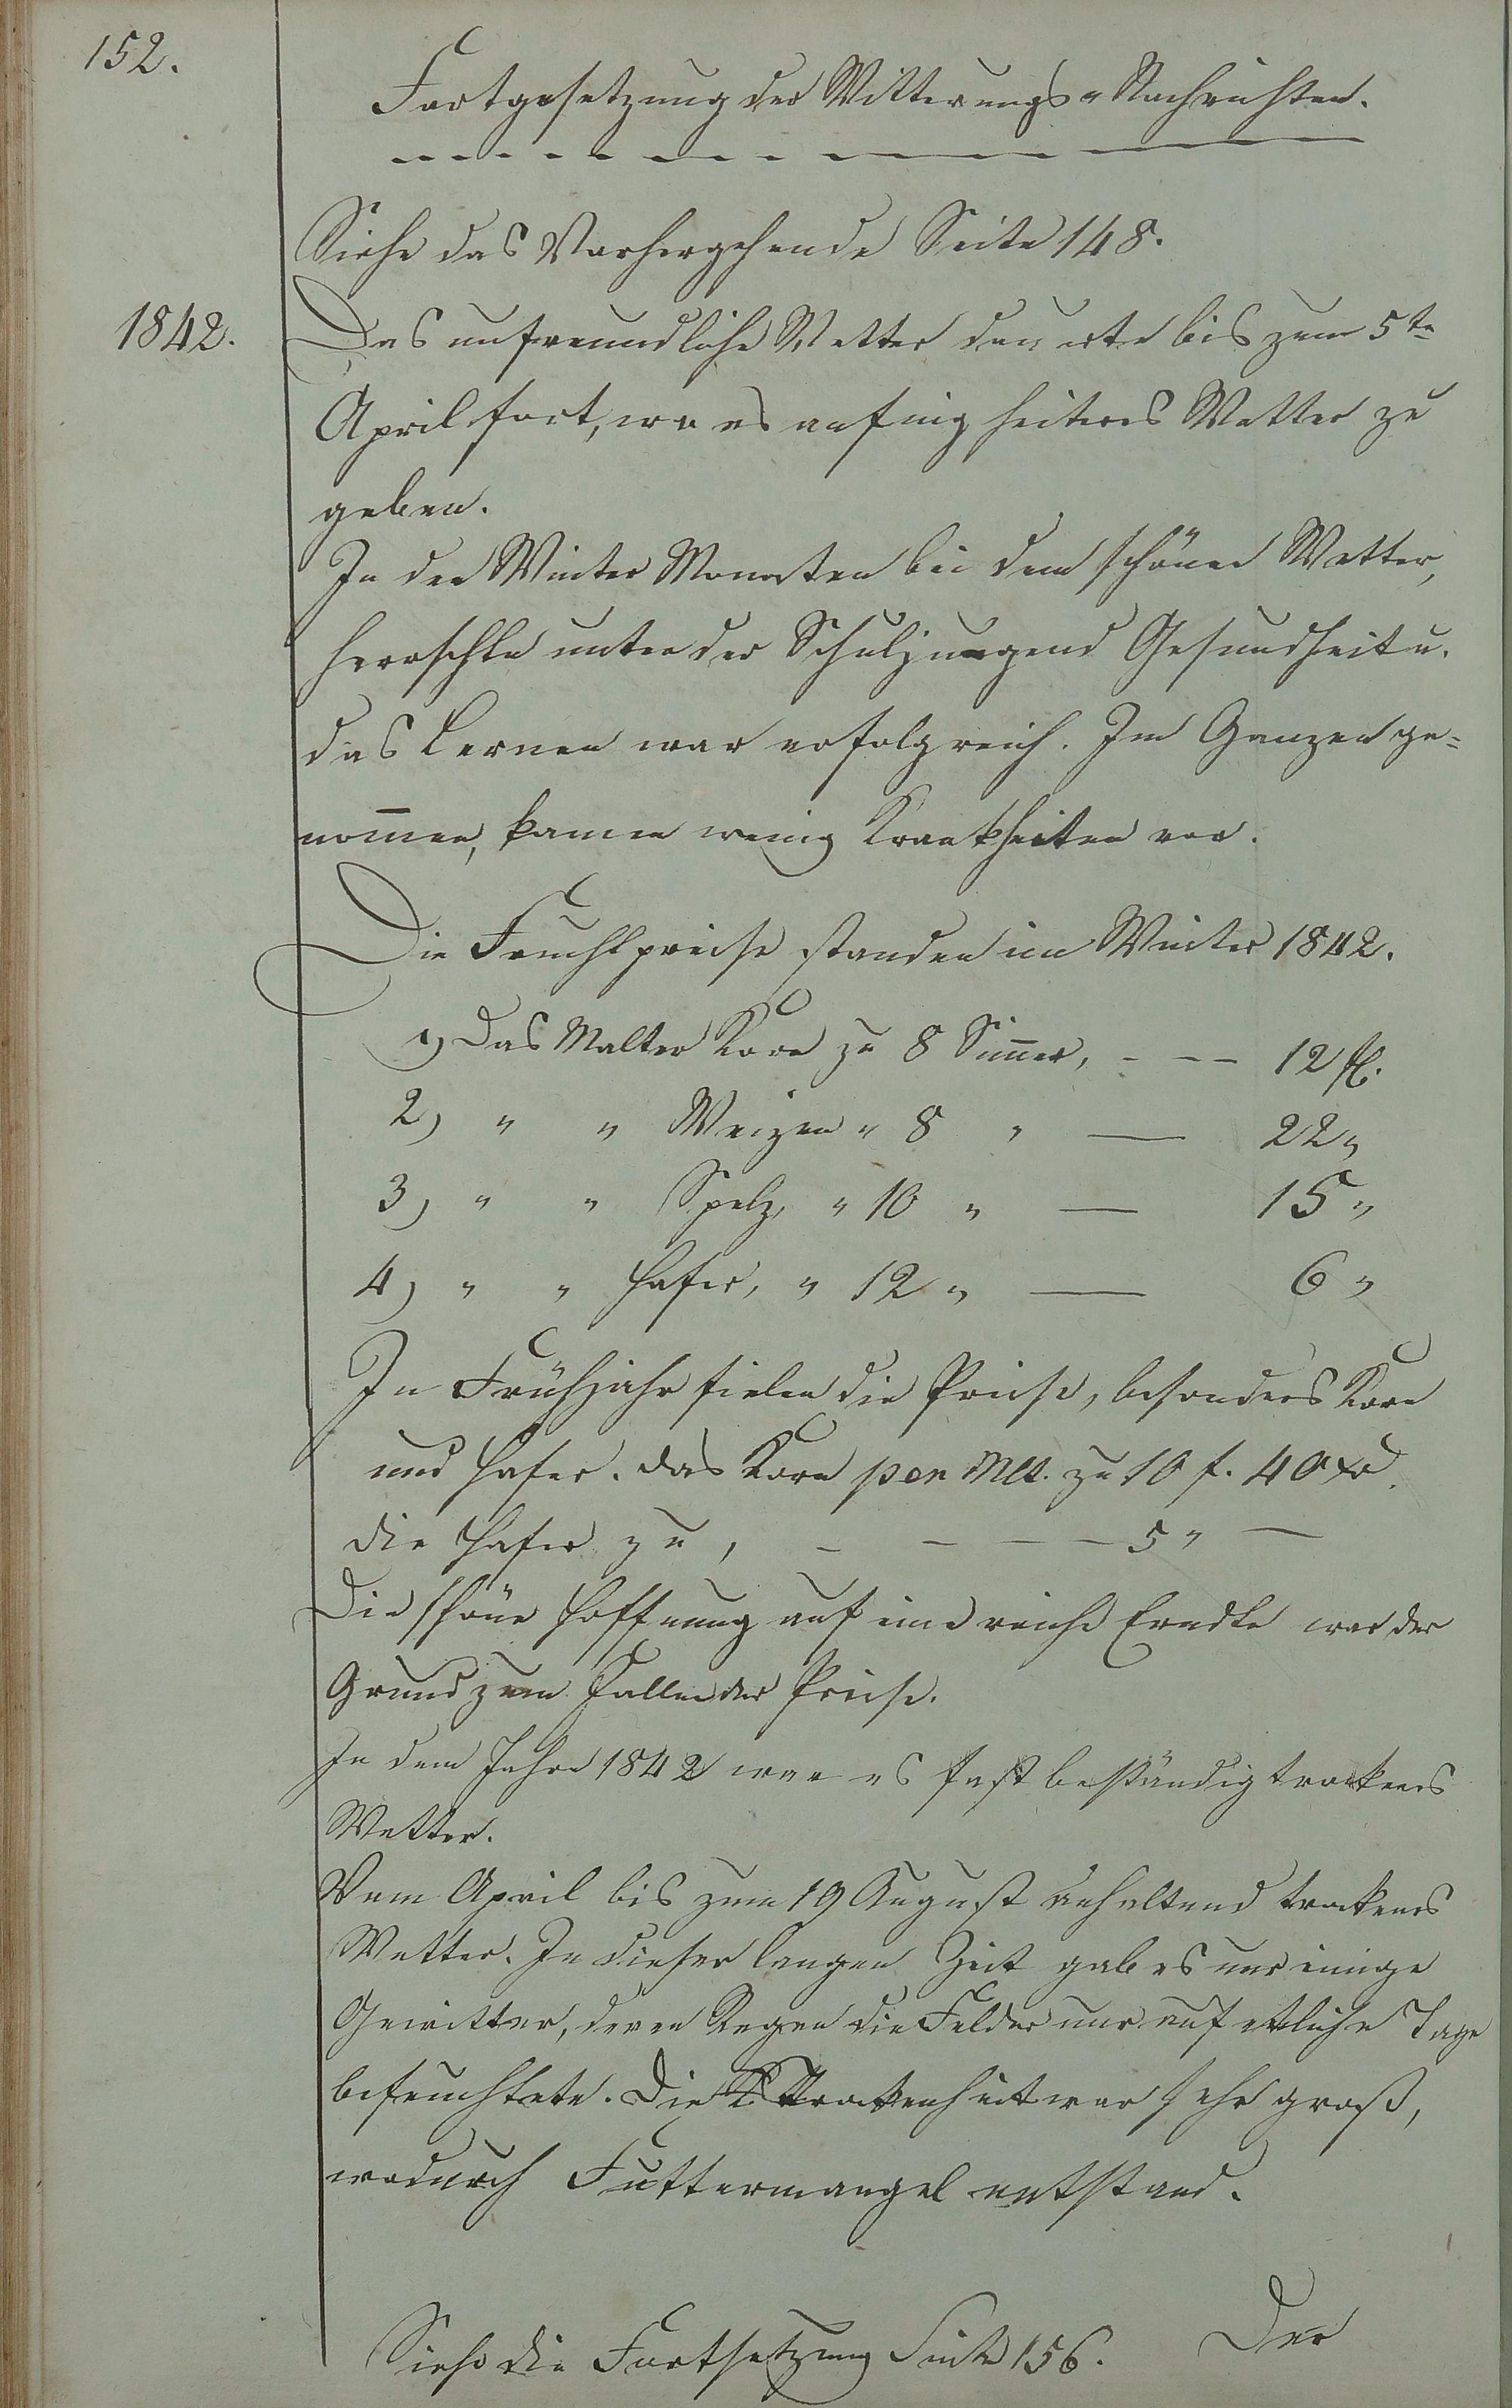 152.
Fortgesetzung der Witterungs-Nachrichten.
Siehe das Vorhergehende Seite 148.
1842.
Das unfreundliche Wetter dauerte bis zum 5te
April fort, wo es anfing heiteres Wetter zu
geben.
In den Winter Monaten bei dem schönen Wetter,
herrschte unter der Schuljungend Gesundheit u.
das Lernen war erfolgreich. Im Ganzen ge=
nom̄en, kamen wenig Krankheiten vor.
Die Fruchtpreise standen im Winter 1842.
1) Das Malter Korn zu 8 Sim̄er, - - - 12 fl.
2) " " Weizen " 8 " — 22 "
3) " " Spelz, " 10 " — 15 "
4) " " Hafer, " 12 " — 6 "
In Frühjahr fielen die Preise, besonders Korn
und Hafer. Das Korn per Mlt. zu 10 f. 40 xr.
die Hafer zu, - - - - 5 " —
Die schöne Hoffnung auf eine reiche Erndte war der
Grund zum Fallen der Preise.
In dem Jahre 1842 war es fast beständig trockenes
Wetter.
Vom April bis zum 19 August anhaltend trokenes
Wetter. In dieser langen Zeit gab es nur einige
Gewitter, deren Regen die Felder nur auf etliche Tage
befeuchtete. Die Trokenheit war sehr groß,
wodurch Futtermangel entstand.
Der
Siehe die Fortsetzung Seite 156.